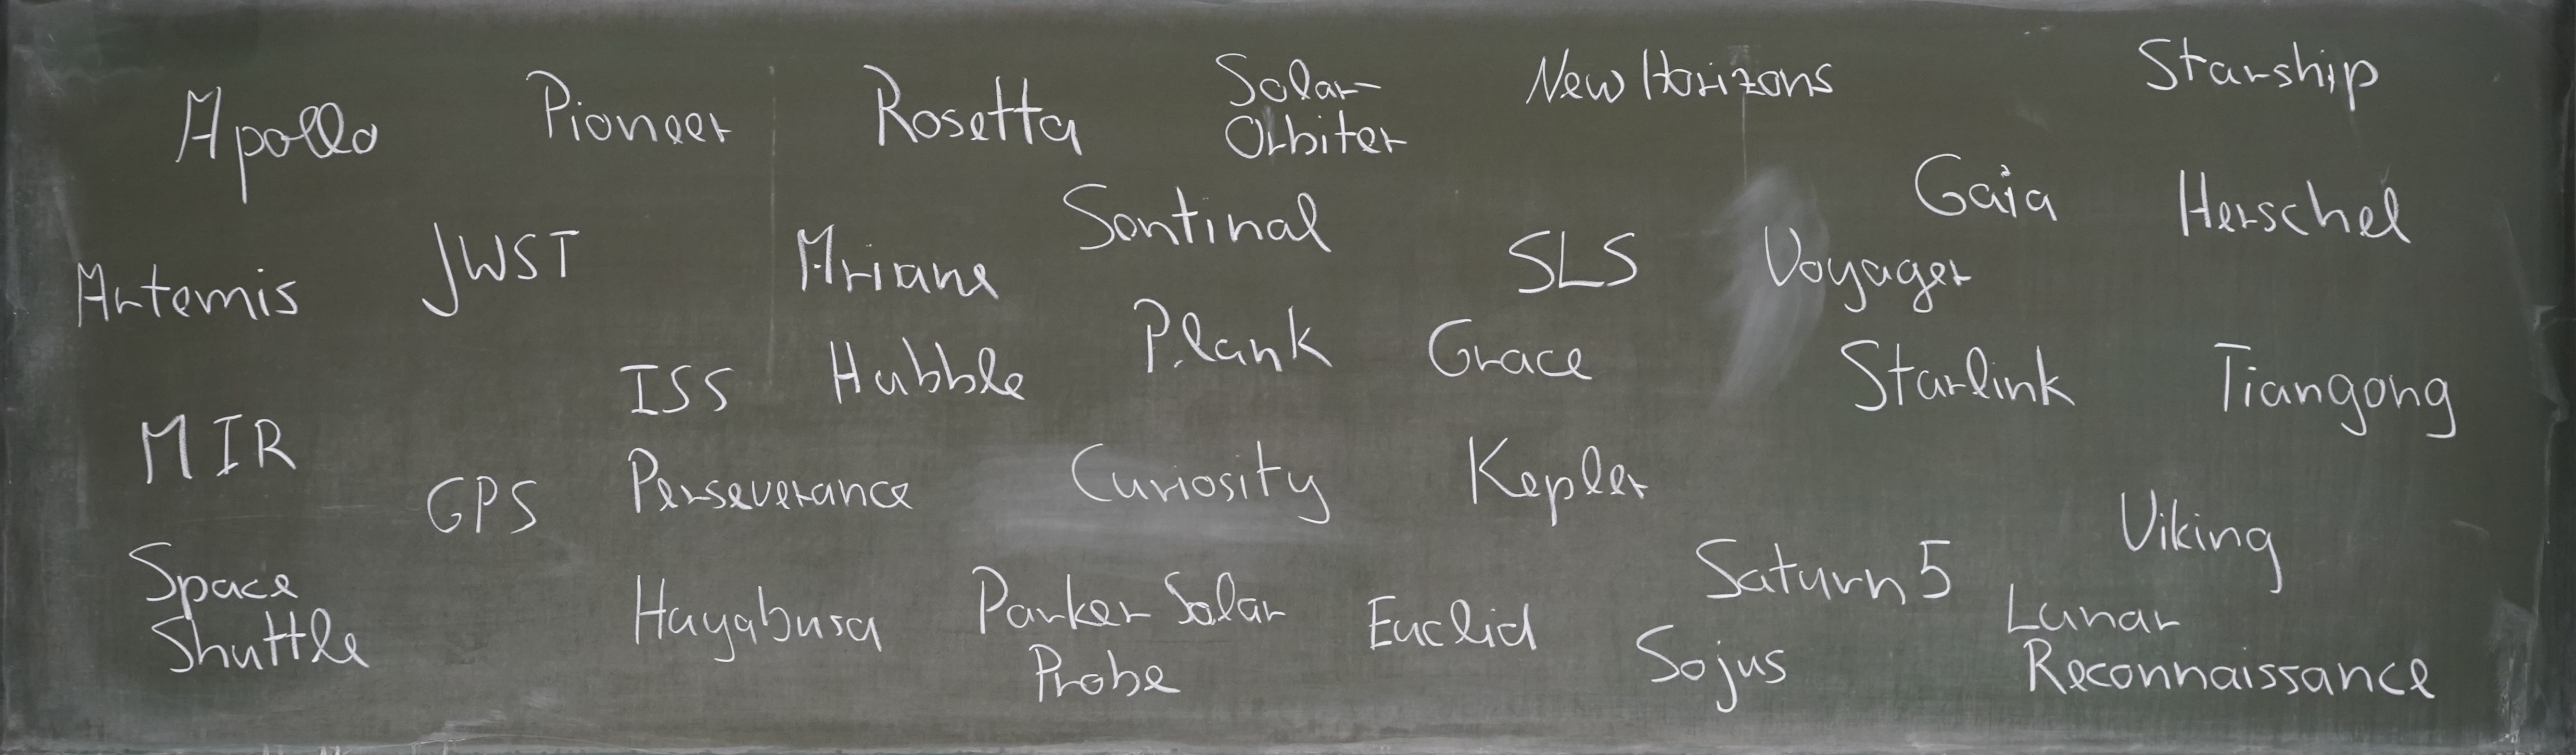 Apollo
Pioneer
Rosetta
Solar-
Orbiter
New Horizons
Starship
Gaia
Herschel
Artemis
JWST
Ariane
Sentinal
SLS
Voyager
ISS
Hubble
Plank
Grace
Starlink
Tiangong
MIR
GPS
Perseverance
Curiosity
Kepler
Viking
Space
Shuttle
Hayabusa
Parker Solar
Probe
Euclid
Saturn 5
Sojus
Lunar
Reconnaissance